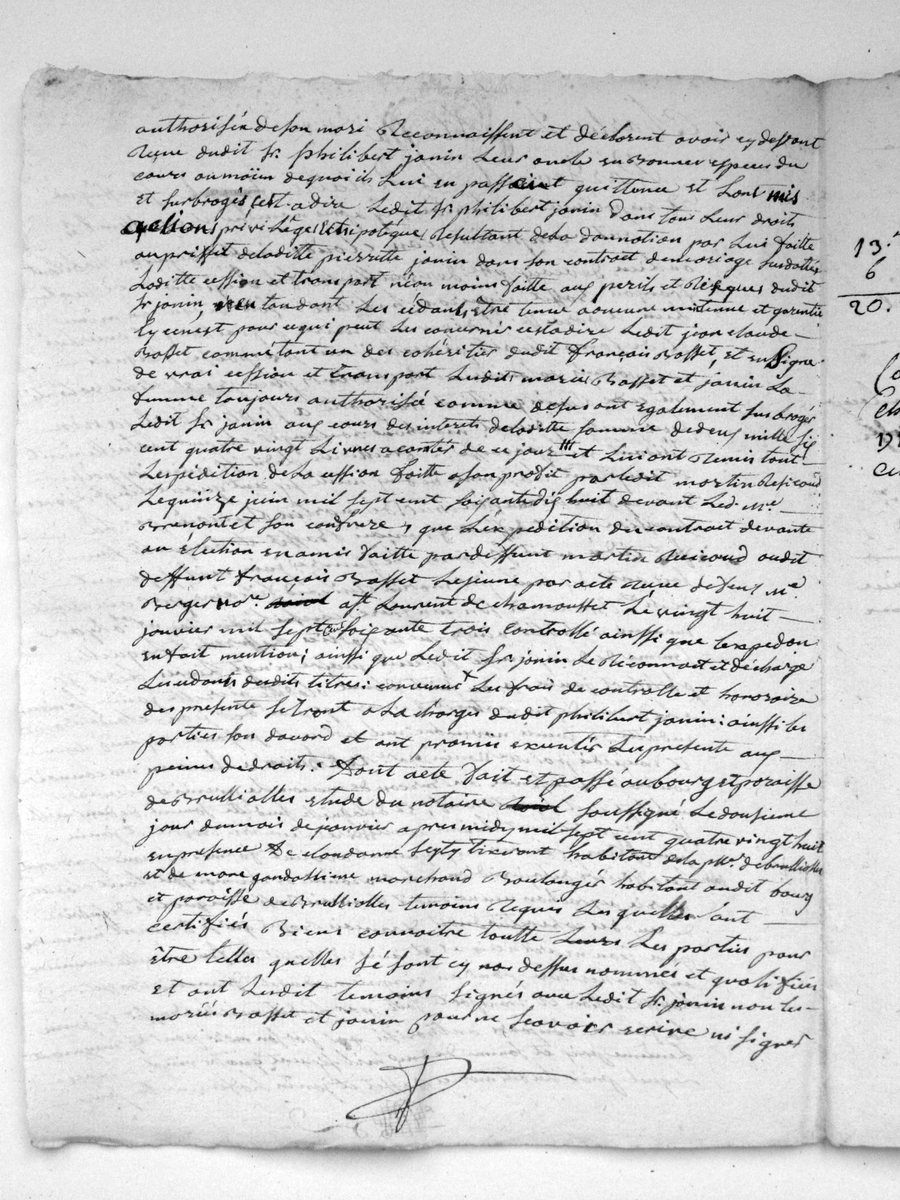 authorisée de son mari Reconnaissent et déclarent avoir cy devant
Reçue dudit Sr philibert janin Leur oncle en Bonnes espèces du
cours au moien de quoi ils Lui en passent quittence et Lont mis
et surbrogés c'est a dire Ledit Sr philibert janin dans tous Leur droits
actions privilèges et ipotèques Resultant de la donnation par Lui faitte
au proffit de laditte pierrette janin dans son contrat de mariage susdatté
Laditte cession et transport néan moins faitte aux perils et Risques dudit
Sr janin, sans les cédants être tenue a aucune maintenue et garentie
sy ce n'est pour ce qui peut Les concernir c'est a dire Ledit jean claude
Basset comme étant un des cohéritier dudit français Basset, et en Signe
de vrai cession et transport Lesdits mariés Basset et janin La
femme toujours authorisée comme desus ont également surbrogés
Ledit Sr janin aux cours des interets de laditte somme de deux mille six
cent quatre vingt Livres a compter de ce jour et Lui ont Remis tout
L'espédition de La cession faitte a son profit par Ledit martin Resicaud
Le quinze juin mil sept cent soixante dix huit devant Led. Me
Brenont et son confrere, que L'expédition du contrait de vante
ou élection en amis faitte par deffunt martin Reicaud audit
deffunt français Basset Le jeune par acte Reçue de feux Me
Berger nore. a St Laurent de chamousset Le vingt huit
janvier mil sept cent soixante trois controllé ainssi que L'expedon
en fait mention; ainssi que Ledit Sr janin Le Reconnaet et décharge
Les cédants desdits titres: convenue Les frais de controlle et honoraire
des presente seront a La charges dudit philibert janin: ainssi les
parties son d'acord et ont promis executer Les presente aux
peines de droits: Dont acte fait et passé au bourg et paroisse
de Brullialles etude du notaire soussigné Le dousieme
jour du mois de janvier apres midy mil sept cent quatre vingt huit
en presence De claudanne tixerant habitant de la pse. de brullialles
et de marc gandossime marchand Boulanger habitant audit bourg
et paroisse de Brullialles temoins Requis Lesquelles ont
certifiés Biens connaitre toutte Leurs Les parties pour
être telles quelles sé sont cy nos dessus nommés et qualifiées
et ont Lesdit temoins signés avec Ledit Sr janin non les
mariés Basset et janin pour ne scavoir ecrire ni signer
13.
6
20.